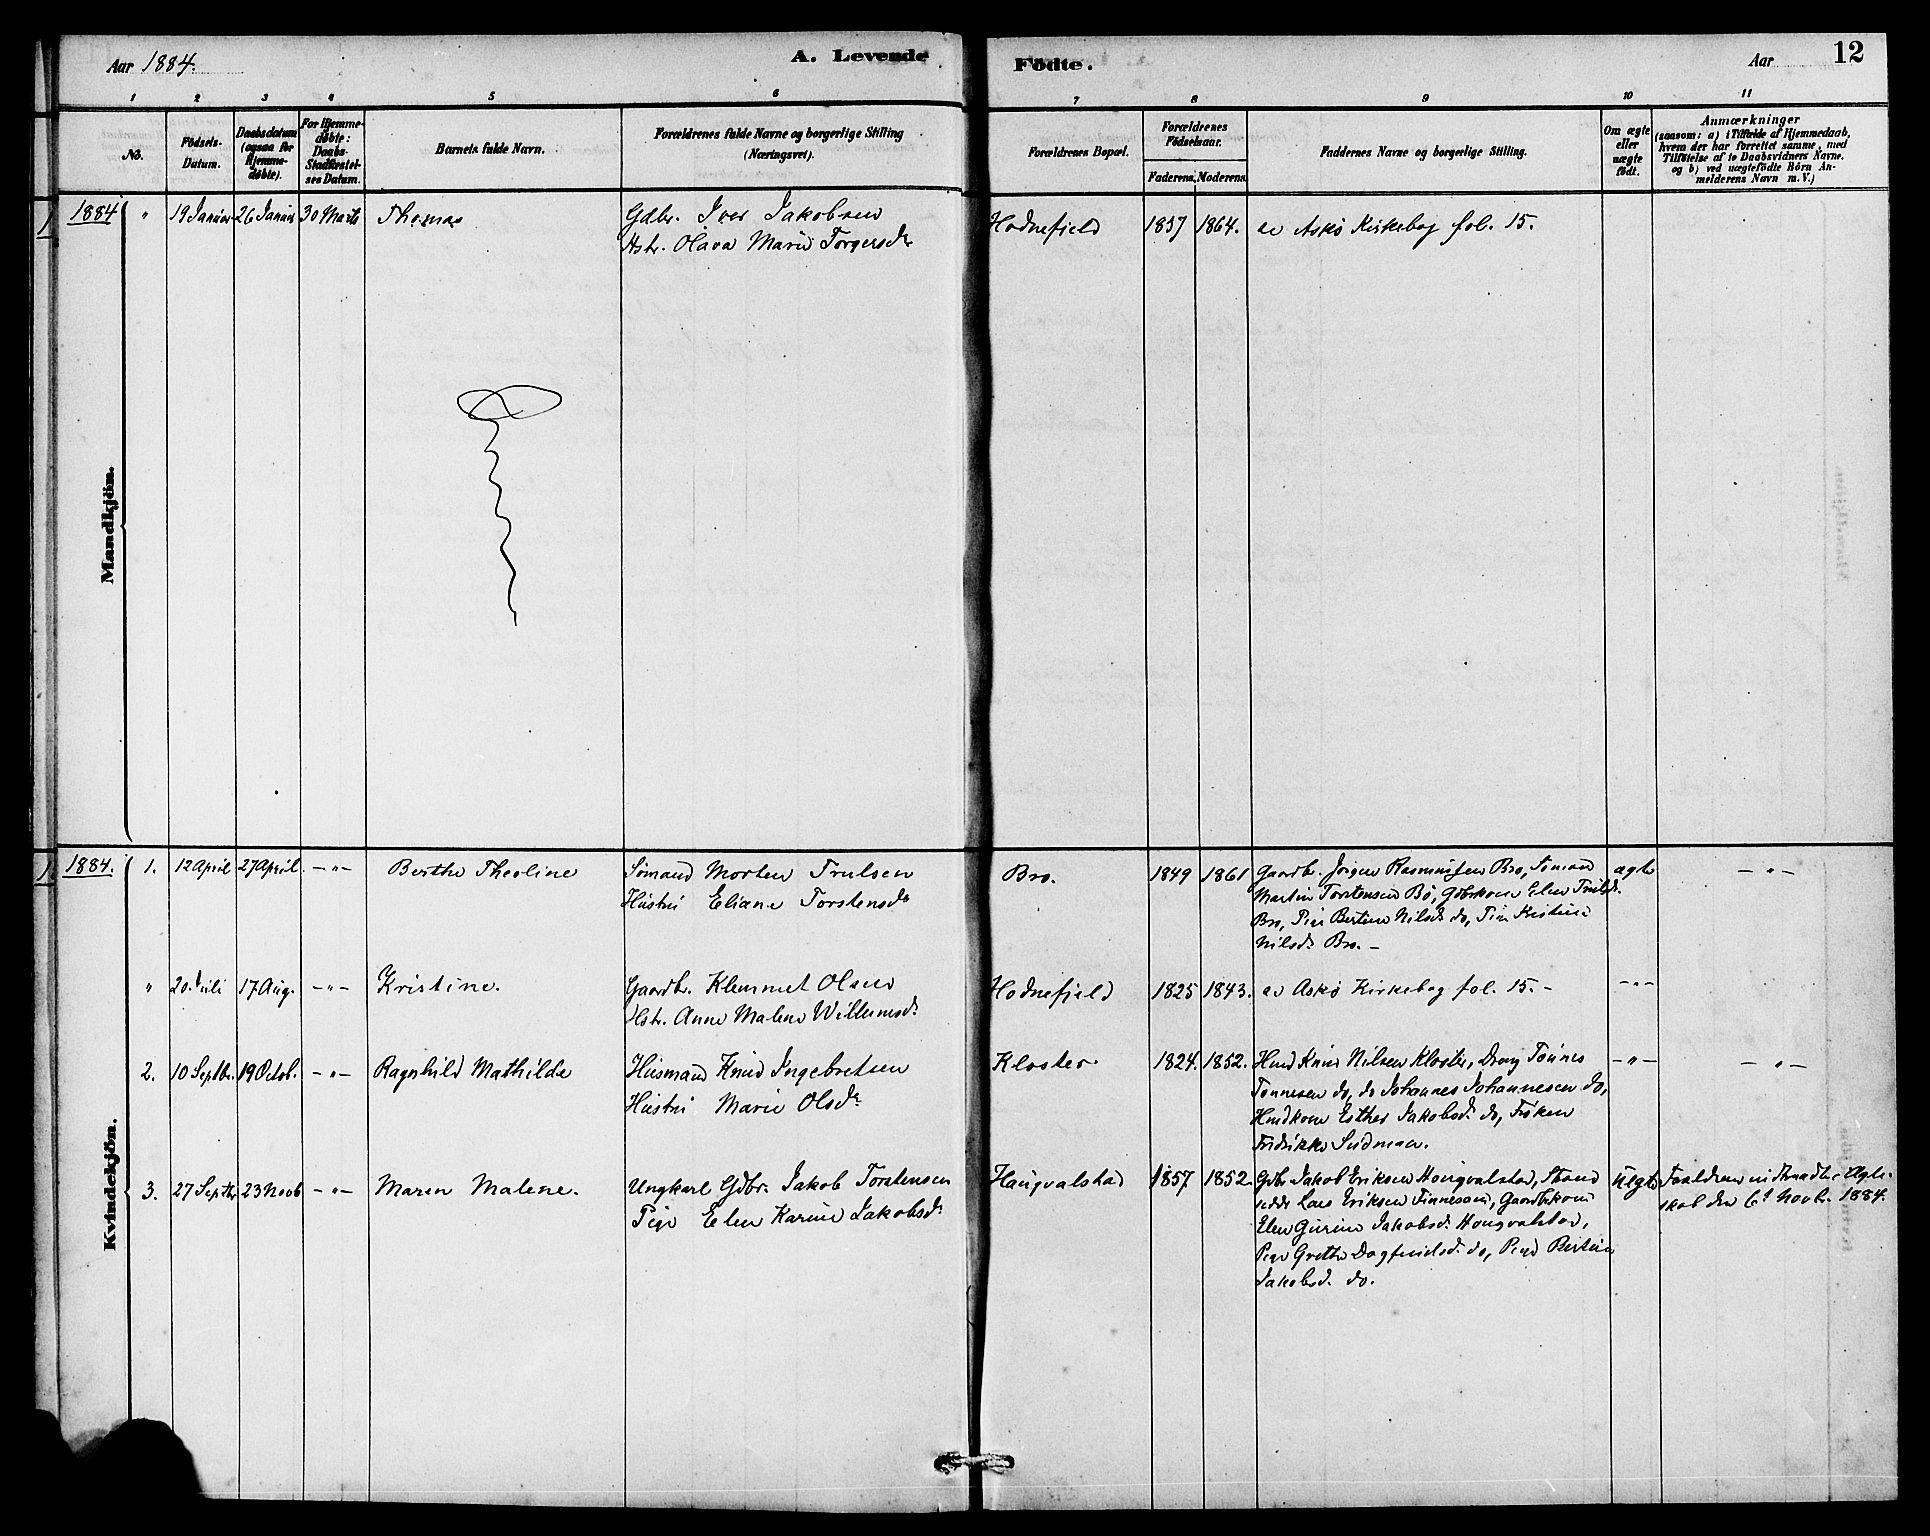 Aar 1884. A. Levende Födte. Aar 12
1 2 3 4 5 6 7 8 9 10 11
No.
Födsels-
Datum.
Daabsdatum
(ogsaa for
Hjemme-
döbte).
For Hjemme-
döbte:
Daabs-
Stadfæstel-
ses Datum.
Barnets fulde Navn.
Forældrenes fulde Navne og borgerlige Stilling
(Næringsvei).
Forældrenes Bopæl.
Forældrenes
Födselsaar.
Faderens. Moderens.
Faddernes Navne og borgerlige Stilling.
Om ægte
eller
uægte
födt.
Anmærkninger
(saasom: a) i Tilfælde af Hjemmedaab,
hvem der har forrettet samme, med
Tilföielse af to Daabsvidners Navne.
og b) ved uægtefödte Börn An-
melderens Navn m. V.)
Mandkjön.
1884 " 19 Januar 26 Januar 30 Marts Thomas
Gdbr. Iver Jakobsen
Hstr. Olava Marie Torgersdr
Hodnefjeld 1857 1864. Askø Kirkebog fol. 15.
Kvindekjön.
1884. 1. 12 April 27 April. -"- Berthe Theoline
Sømand Morten Trulsen
Hustru Eliane Torstensdr
Bro. 1849 1861
Gaardbr. Jørgen Rasmussen Bro, Sømand
Martin Torstensen Bø, Gdbrkone Elen Trulsdr.
Bro, Pige Bertine Nilsdr. do, Pige Kristine
Nilsdr. Bro. -
ægte -"-
" 20. Juli 17 Aug. -"- Kristine.
Gaardbr. Klemmet Olsen
Hstr. Anne Malene Willumsdr.
Hodnefjeld 1825 1843. Askø Kirkebog fol. 15. - -"-
2. 10 Septbr. 19 Octob. -"- Ragnhild Mathilde
Husmand Knud Ingebretsen
Hustru Marie Olsdr
Kloster 1824. 1852.
Knud Nilsen Kloster, Dreng Tønnes
Tønnesen do, do Johannes Johannesen do,
Esther Jakobsdr. do, Frøken
Fredrikke
-"- -"-
3. 27 Septbr 23 Novb -"- Maren Malene.
Ungkarl Gdbr. Jakob Torstensen
Pige Elen Karine Jakobsdr
Haugvalstad 1857 1852
Gdbr. Jakob Eriksen Hougvalstad, Strand
sidder Lars Eriksen Finnesand, Gaardbrkone
Elen Gurine Jakobsdr. Hougvalstad,
Pige Grethe Dagfinsdr. do, Pige Bertine
Jakobsd. do.
Uægte Forældrene indtraadte i Ægte-
skab den 6t Novbr. 1884.